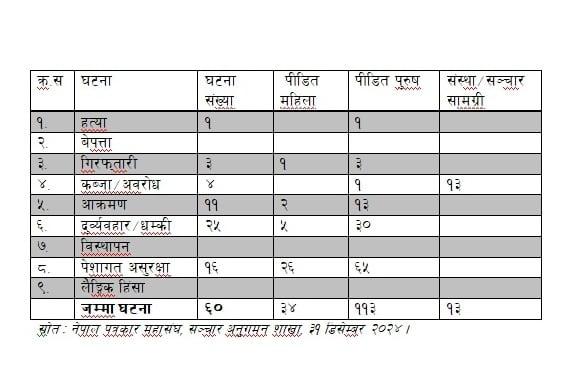 क्र.स घटना घटना संख्या पीडित महिला पीडित पुरुष संस्था/सञ्चार सामग्री
१. हत्या १ १
२. बेपत्ता
३. गिरफ्तारी ३ १ ३
४. कब्जा/अवरोध ४ १ १३
५. आक्रमण ११ २ १३
६. दुर्व्यवहार/धम्की २५ ५ ३०
७. विस्थापन
८. पेशागत असुरक्षा १६ २६ ६५
९. लैङ्गिक हिंसा
जम्मा घटना ६० ३४ ११३ १३
स्रोत : नेपाल पत्रकार महासंघ, सञ्चार अनुगमन शाखा, ३१ डिसेम्बर २०२४ ।